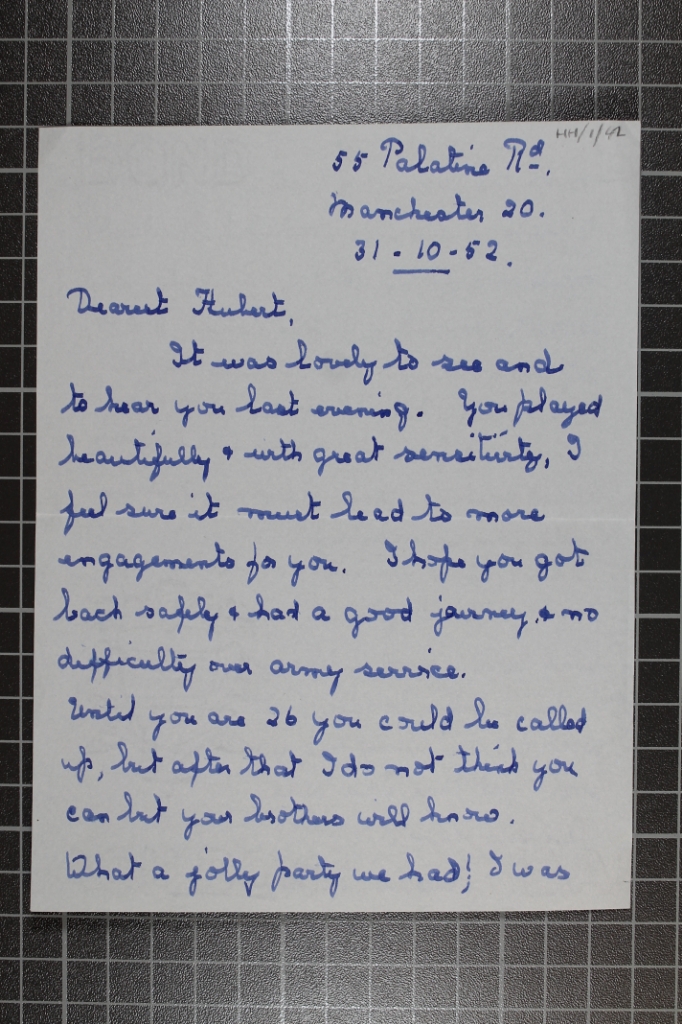 HH/1/42
55 Palatine Rd.
Manchester 20.
31-10-52.
Dearest Hubert,
It was lovely to see and
to hear you last evening. You played
beautifully & with great sensitivity, I
feel sure it must lead to more
engagements for you. I hope you got
back safely & had a good journey, & no
difficulty over army service.
Until you are 26 you could be called
up, but after that I do not think you
can but your brothers will know.
What a jolly party we had! I was